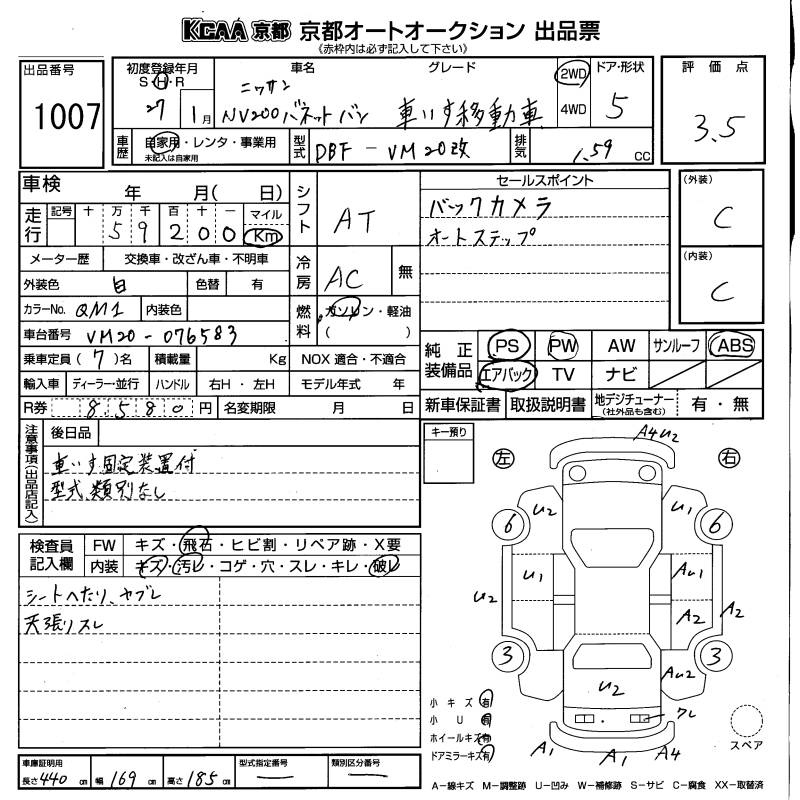 KCAA 京都 京都オートオークション 出品票
《赤枠内は必ず記入して下さい》
出品番号 1007
初度登録年月 S・H・R 27 1月
車名 ニッサン NV200バネットバン
グレード 車いす移動車
2WD 4WD
ドア・形状 5
評価点 3.5
車歴 自家用・レンタ・事業用
未記入は自家用
型式 DBF-VM20改
排気 1.59 cc
車検 年 月( 日)
走行 記号 十 万 千 百 十 一 マイル
59200 Km
メーター歴 交換車・改ざん車・不明車
外装色 白 色替 有
カラーNo. QM1 内装色
車台番号 VM20-076583
乗車定員(7)名 積載量 Kg NOX 適合・不適合
輸入車 ディーラー・並行 ハンドル 右H・左H モデル年式 年
R券 8580円 名変期限 月 日
シフト AT
冷房 AC 無
燃料 ガソリン・軽油
( )
セールスポイント
バックカメラ
オートステップ
(外装) C
(内装) C
純正装備品 PS PW AW サンルーフ ABS
エアバック TV ナビ
新車保証書 取扱説明書 地デジチューナー(社外品も含む) 有・無
注意事項(出品店記入)
後日品
車いす固定装置付
型式、類別なし
検査員記入欄
FW キズ・飛石・ヒビ割・リペア跡・X要
内装 キズ・汚レ・コゲ・穴・スレ・キレ・破レ
シートへたり、ヤブレ
天張りスレ
キー預り
左 右
A4U2
U2 U1
6 6
U1 AU1
U2 A2 A2
3 3
AU2
U2
クレ
A1 A1 A4
小キズ 有
小U 有
ホイールキズ 有
ドアミラーキズ 有
スペア
車庫証明用
長さ 440cm 幅 169cm 高さ 185cm
型式指定番号 —
類別区分番号 —
A-線キズ M-調整跡 U-凹み W-補修跡 S-サビ C-腐食 XX-取替済